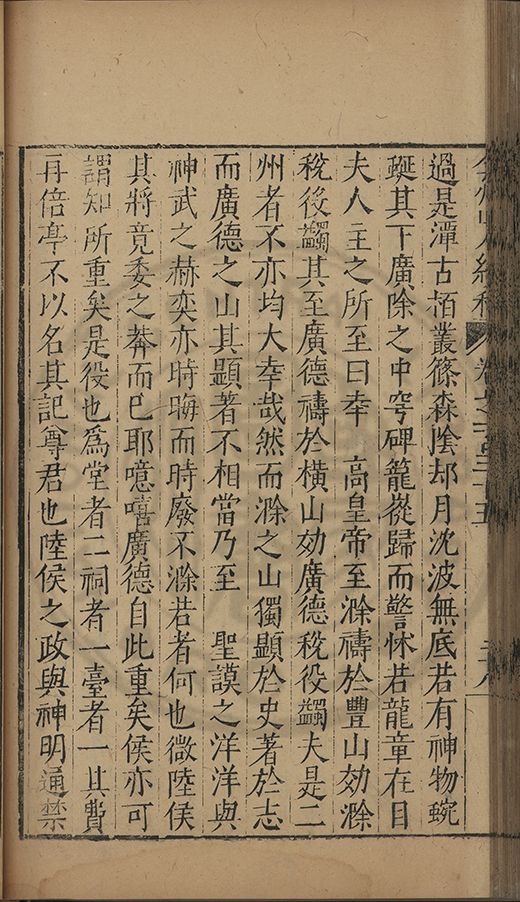 過是潭古栢叢篠森陰却月沈波無底若有神物蜿
蹤其下廣除之中穹碑籠嵸歸而警怵若龍章在目
夫人主之所至曰幸　高皇帝至滁禱於豐山効滁
稅役蠲其至廣德禱於橫山効廣德稅役蠲夫是二
州者不亦均大幸哉然而滁之山獨顯於史著於志
而廣德之山其顯著不相當乃至　聖謨之洋洋與
神武之赫奕亦時晦而時廢不滁若者何也微陸侯
其將竟委之莽而巳耶噫嘻廣德自此重矣侯亦可
謂知所重矣是役也爲堂者二祠者一臺者一其費
再倍亭不以名其記尊君也陸侯之政與神明通禁